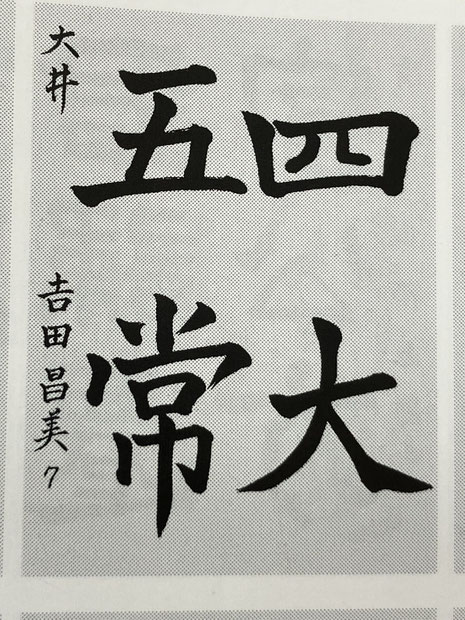 四大
五常
大井 𠮷田昌美 7